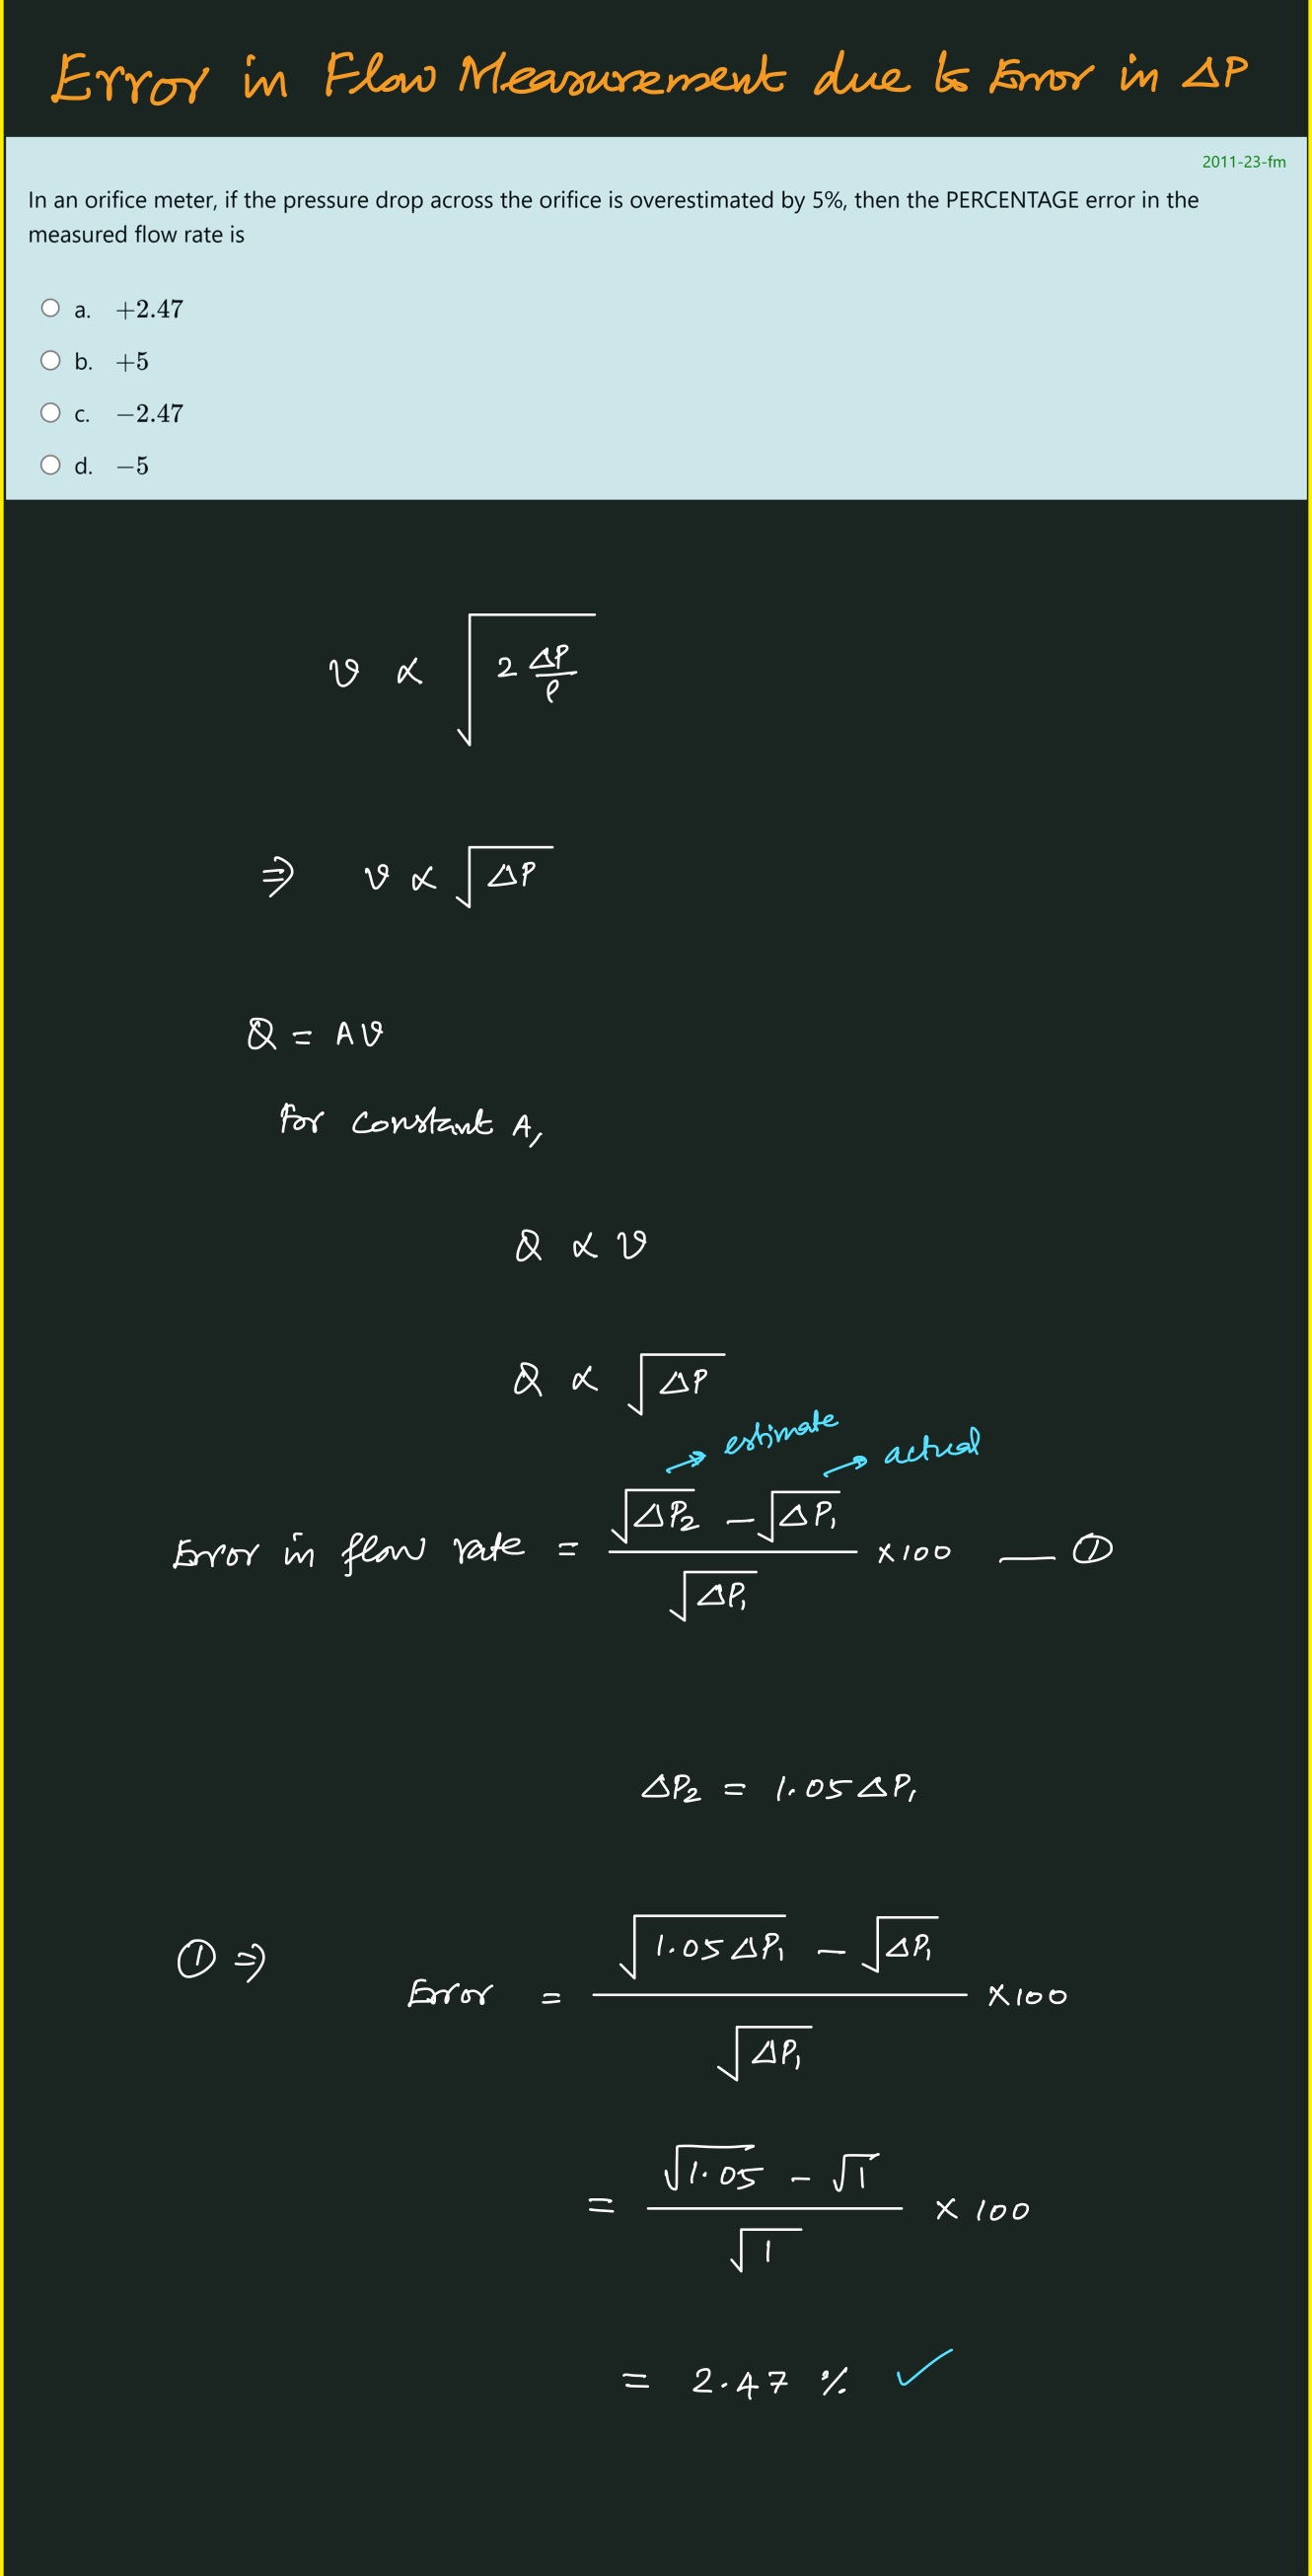 Error in Flow Measurement due to Error in ΔP
2011-23-fm
In an orifice meter, if the pressure drop across the orifice is overestimated by 5%, then the PERCENTAGE error in the
measured flow rate is
a. +2.47
b. +5
c. −2.47
d. −5
v ∝ √(2 ΔP/ρ)
⇒ v ∝ √ΔP
Q = Av
for constant A,
Q ∝ v
Q ∝ √ΔP
→ estimate → actual
Error in flow rate = (√ΔP₂ − √ΔP₁)/√ΔP₁ ×100 — ①
ΔP₂ = 1.05 ΔP₁
① ⇒ Error = (√(1.05 ΔP₁) − √ΔP₁)/√ΔP₁ ×100
= (√1.05 − √1)/√1 × 100
= 2.47 % ✓